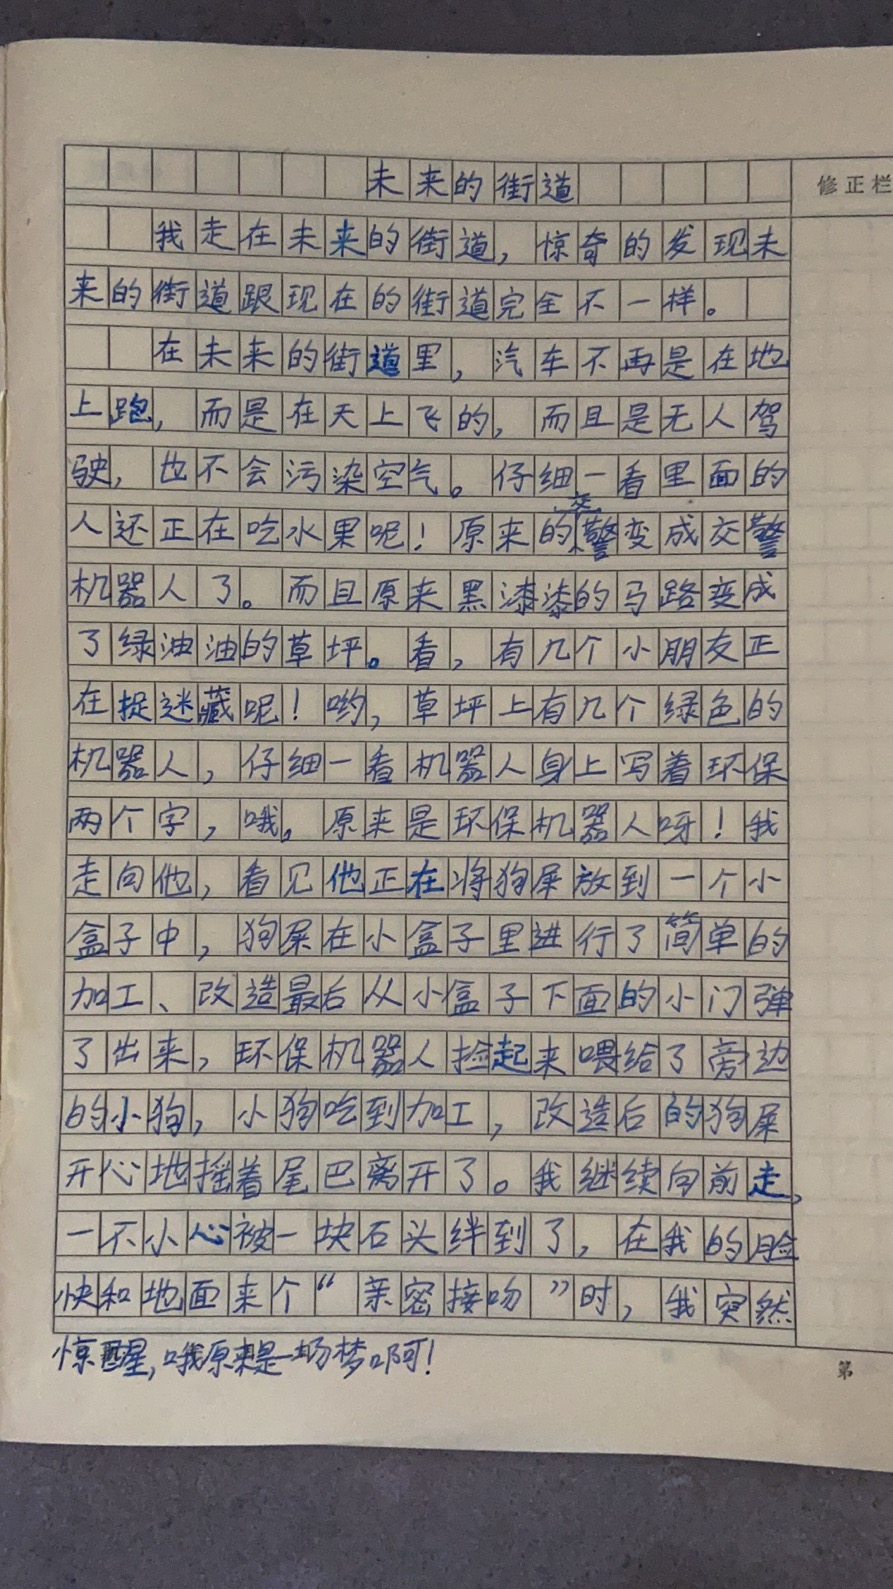 未来的街道
修正栏
我走在未来的街道，惊奇的发现未
来的街道跟现在的街道完全不一样。
在未来的街道里，汽车不再是在地
上跑，而是在天上飞的，而且是无人驾
驶，也不会污染空气。仔细一看里面的
人还正在吃水果呢！原来的交警变成交警
机器人了。而且原来黑漆漆的马路变成
了绿油油的草坪。看，有几个小朋友正
在捉迷藏呢！哟，草坪上有几个绿色的
机器人，仔细一看机器人身上写着环保
两个字，哦。原来是环保机器人呀！我
走向他，看见他正在将狗屎放到一个小
盒子中，狗屎在小盒子里进行了简单的
加工、改造最后从小盒子下面的小门弹
了出来，环保机器人捡起来喂给了旁边
的小狗，小狗吃到加工，改造后的狗屎
开心地摇着尾巴离开了。我继续向前走，
一不小心被一块石头绊到了，在我的脸
快和地面来个“亲密接吻”时，我突然
惊醒，哦原来是一场梦啊！
第